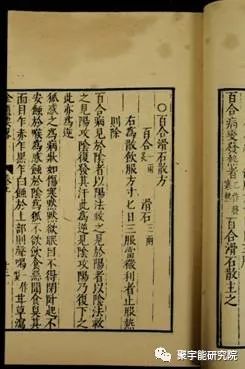 百合病變發熱者一作發寒熱百合滑石散主之
○百合滑石散方
百合一兩炙 滑石三兩
右爲散飲服方寸匕日三服當微利者止服熱
則除
百合病見於陰者以陽法救之見於陽者以陰法救
之見陽攻陰復發其汗此爲逆見陰攻陽乃復下之
此亦爲逆
狐惑之爲病狀如傷寒默默欲眠目不得閉臥起不
安蝕於喉爲惑蝕於陰爲狐不欲飲食惡聞食臭其
面目乍赤乍黑乍白蝕於上部則聲喝一作嗄甘草瀉
聚宇能研究院